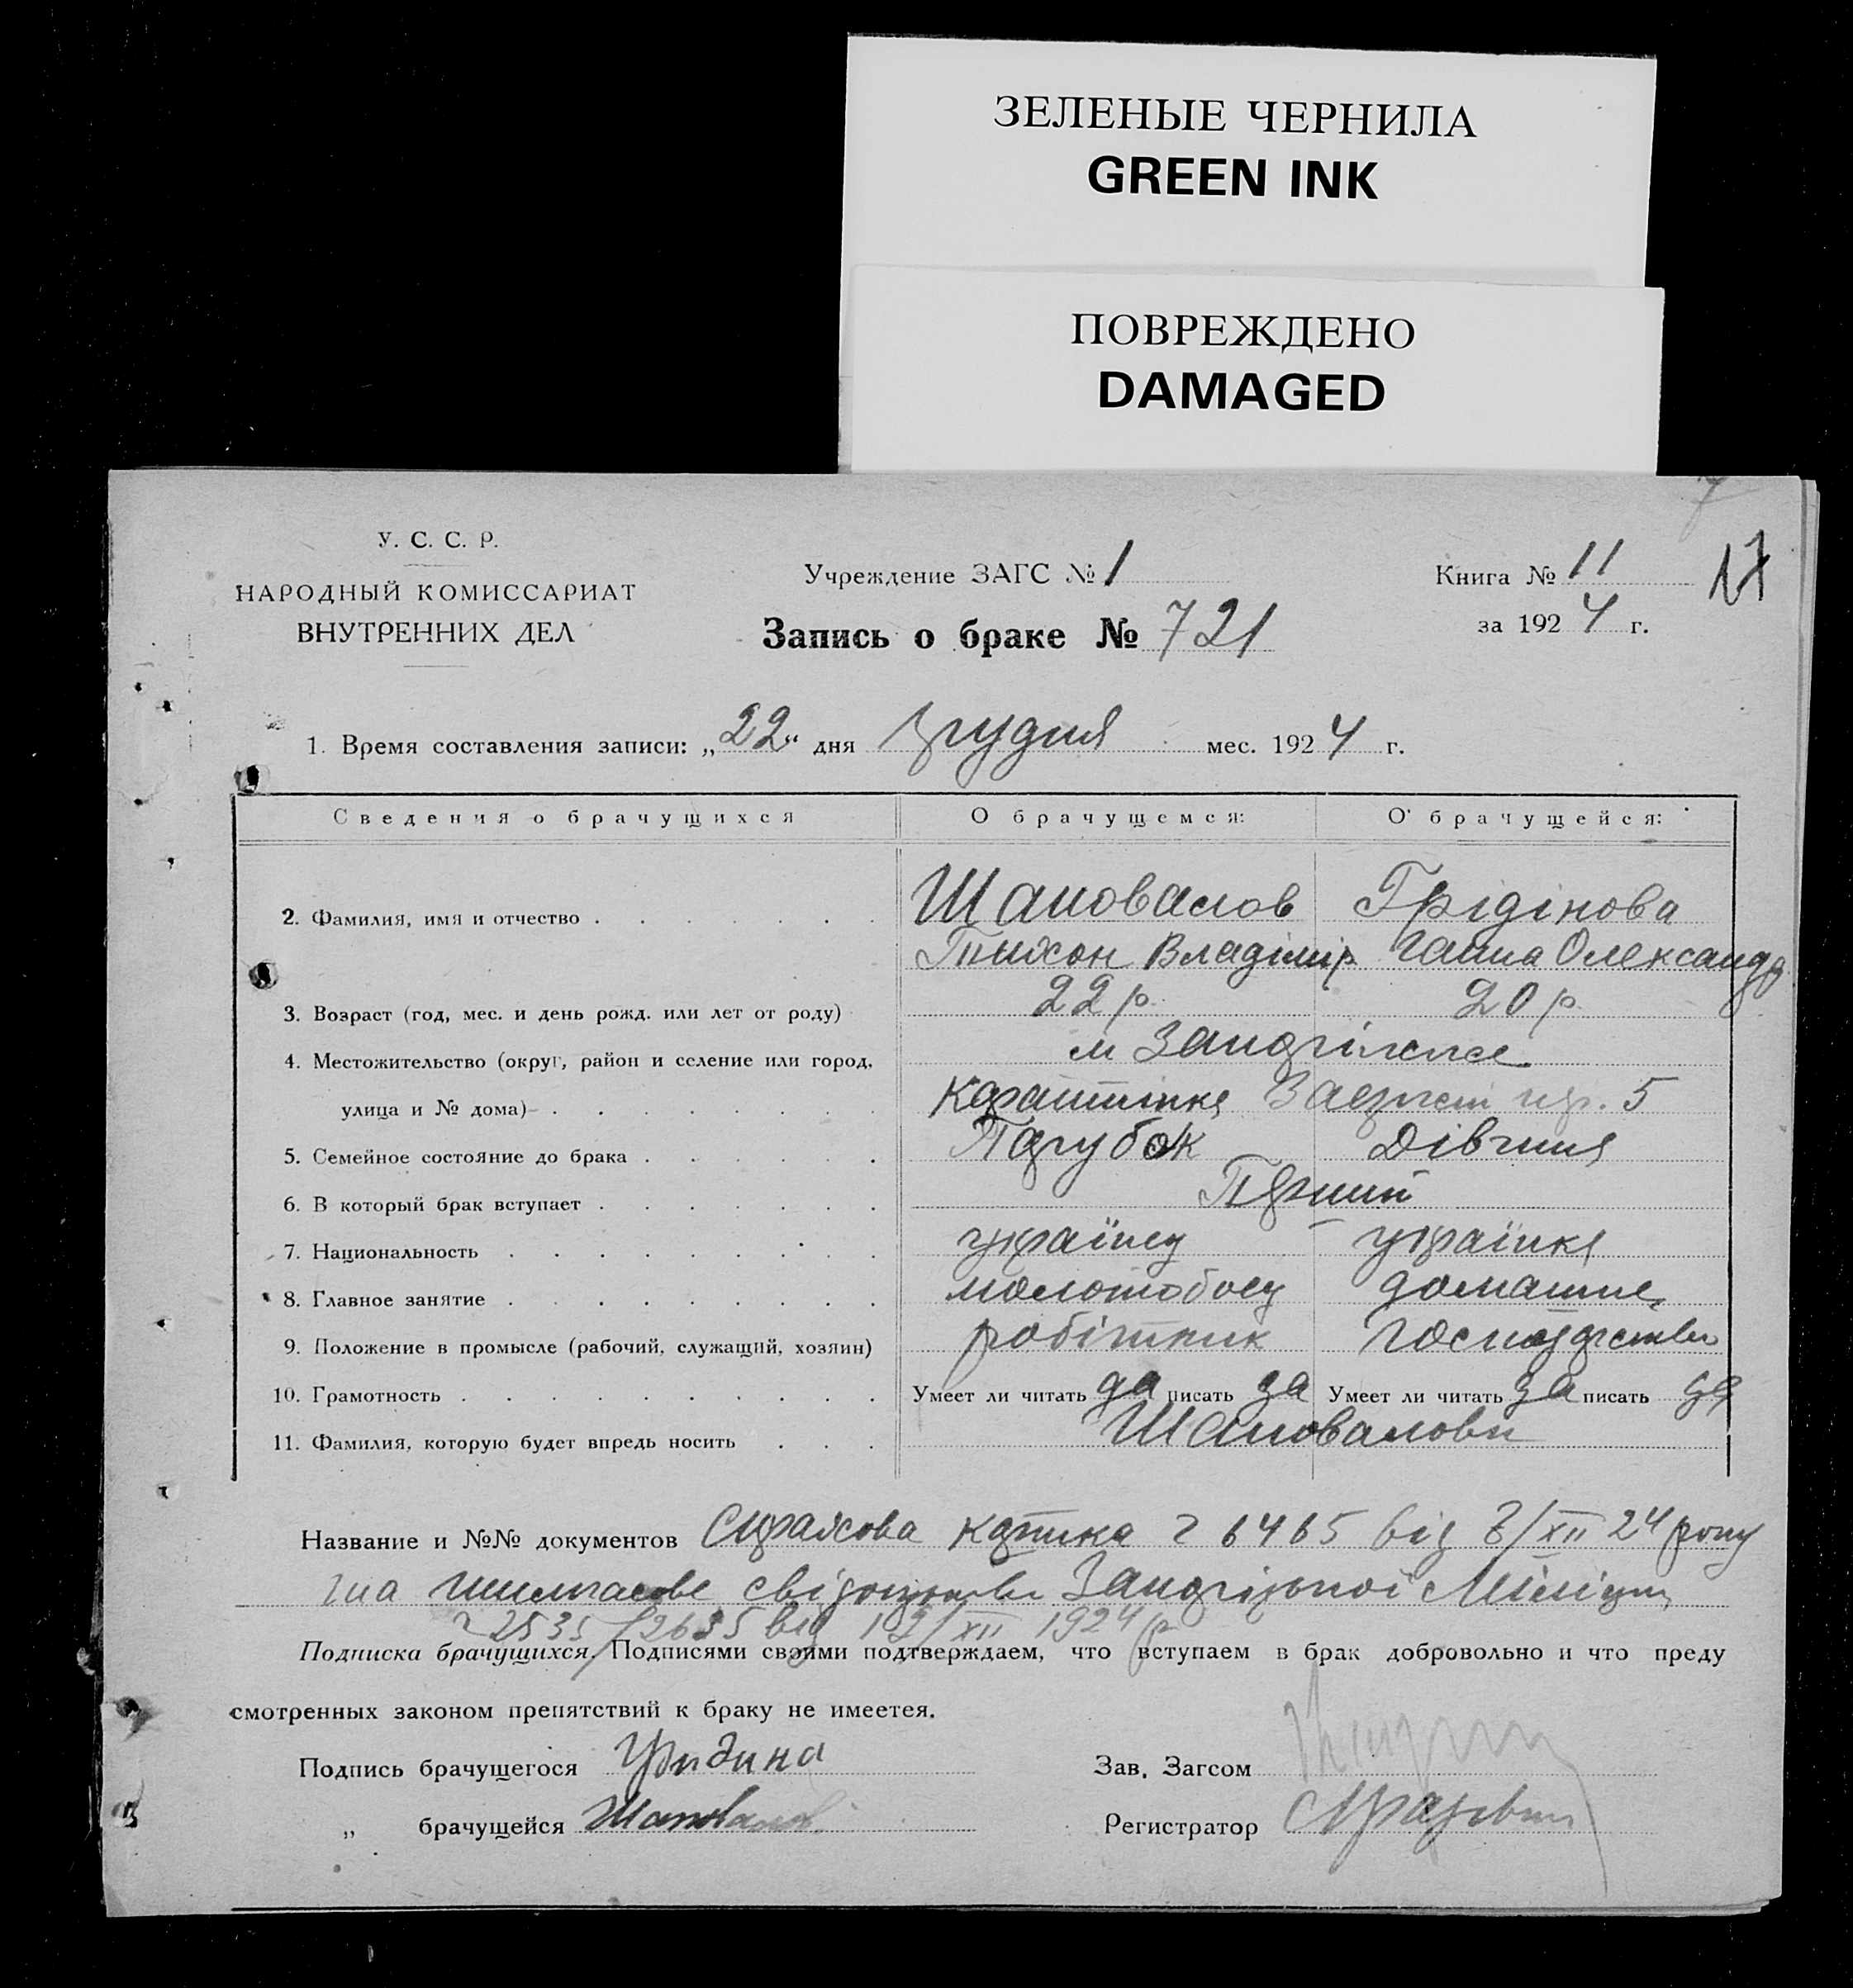 ЗЕЛЕНЫЕ ЧЕРНИЛА
GREEN INK
ПОВРЕЖДЕНО
DAMAGED
У. С. С. Р.
НАРОДНЫЙ КОМИССАРИАТ
ВНУТРЕННИХ ДЕЛ
Учреждение ЗАГС № 1
Запись о браке № 721
Книга № 11
за 1924 г.
17
1. Время составления записи: „22“ дня грудня мес. 1924 г.
Сведения о брачущихся О брачущемся: О брачущейся:
2. Фамилия, имя и отчество Шаповалов Грідінова
Тыхон Владімір Ганна Олександр
3. Возраст (год, мес. и день рожд. или лет от роду) 22 р. 20 р.
4. Местожительство (округ, район и селение или город, м Запоріжже
улица и № дома) 5
5. Семейное состояние до брака Парубок Дівчина
6. В который брак вступает Перший
7. Национальность українец українка
8. Главное занятие молотобоец домашне
9. Положение в промысле (рабочий, служащий, хозяин) робітник господарство
10. Грамотность Умеет ли читать да писать да Умеет ли читать да писать да
11. Фамилия, которую будет впредь носить Шаповалови
Название и №№ документов Страхова картка 6465 від 8/XII 24 року
тимчасове свідоцтво Запорізької Міліции
2535/2635 від 12/XII 1924 р
Подписка брачущихся. Подписями своими подтверждаем, что вступаем в брак добровольно и что преду
смотренных законом препятствий к браку не имеется.
Подпись брачущегося Зав. Загсом
„ брачущейся Шаповалов Регистратор